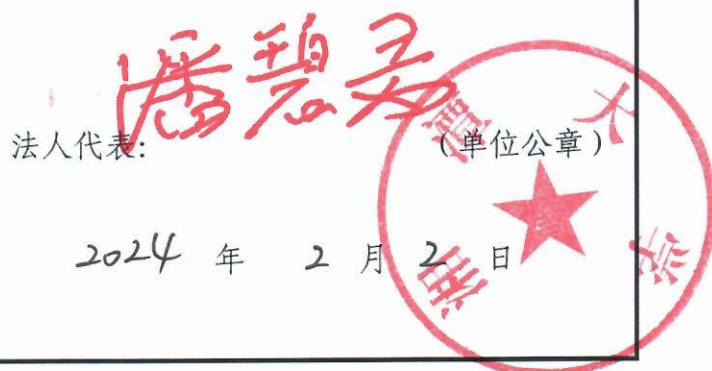 潘碧灵
法人代表:
(单位公章)
2024 年 2 月 2 日
湘潭大学